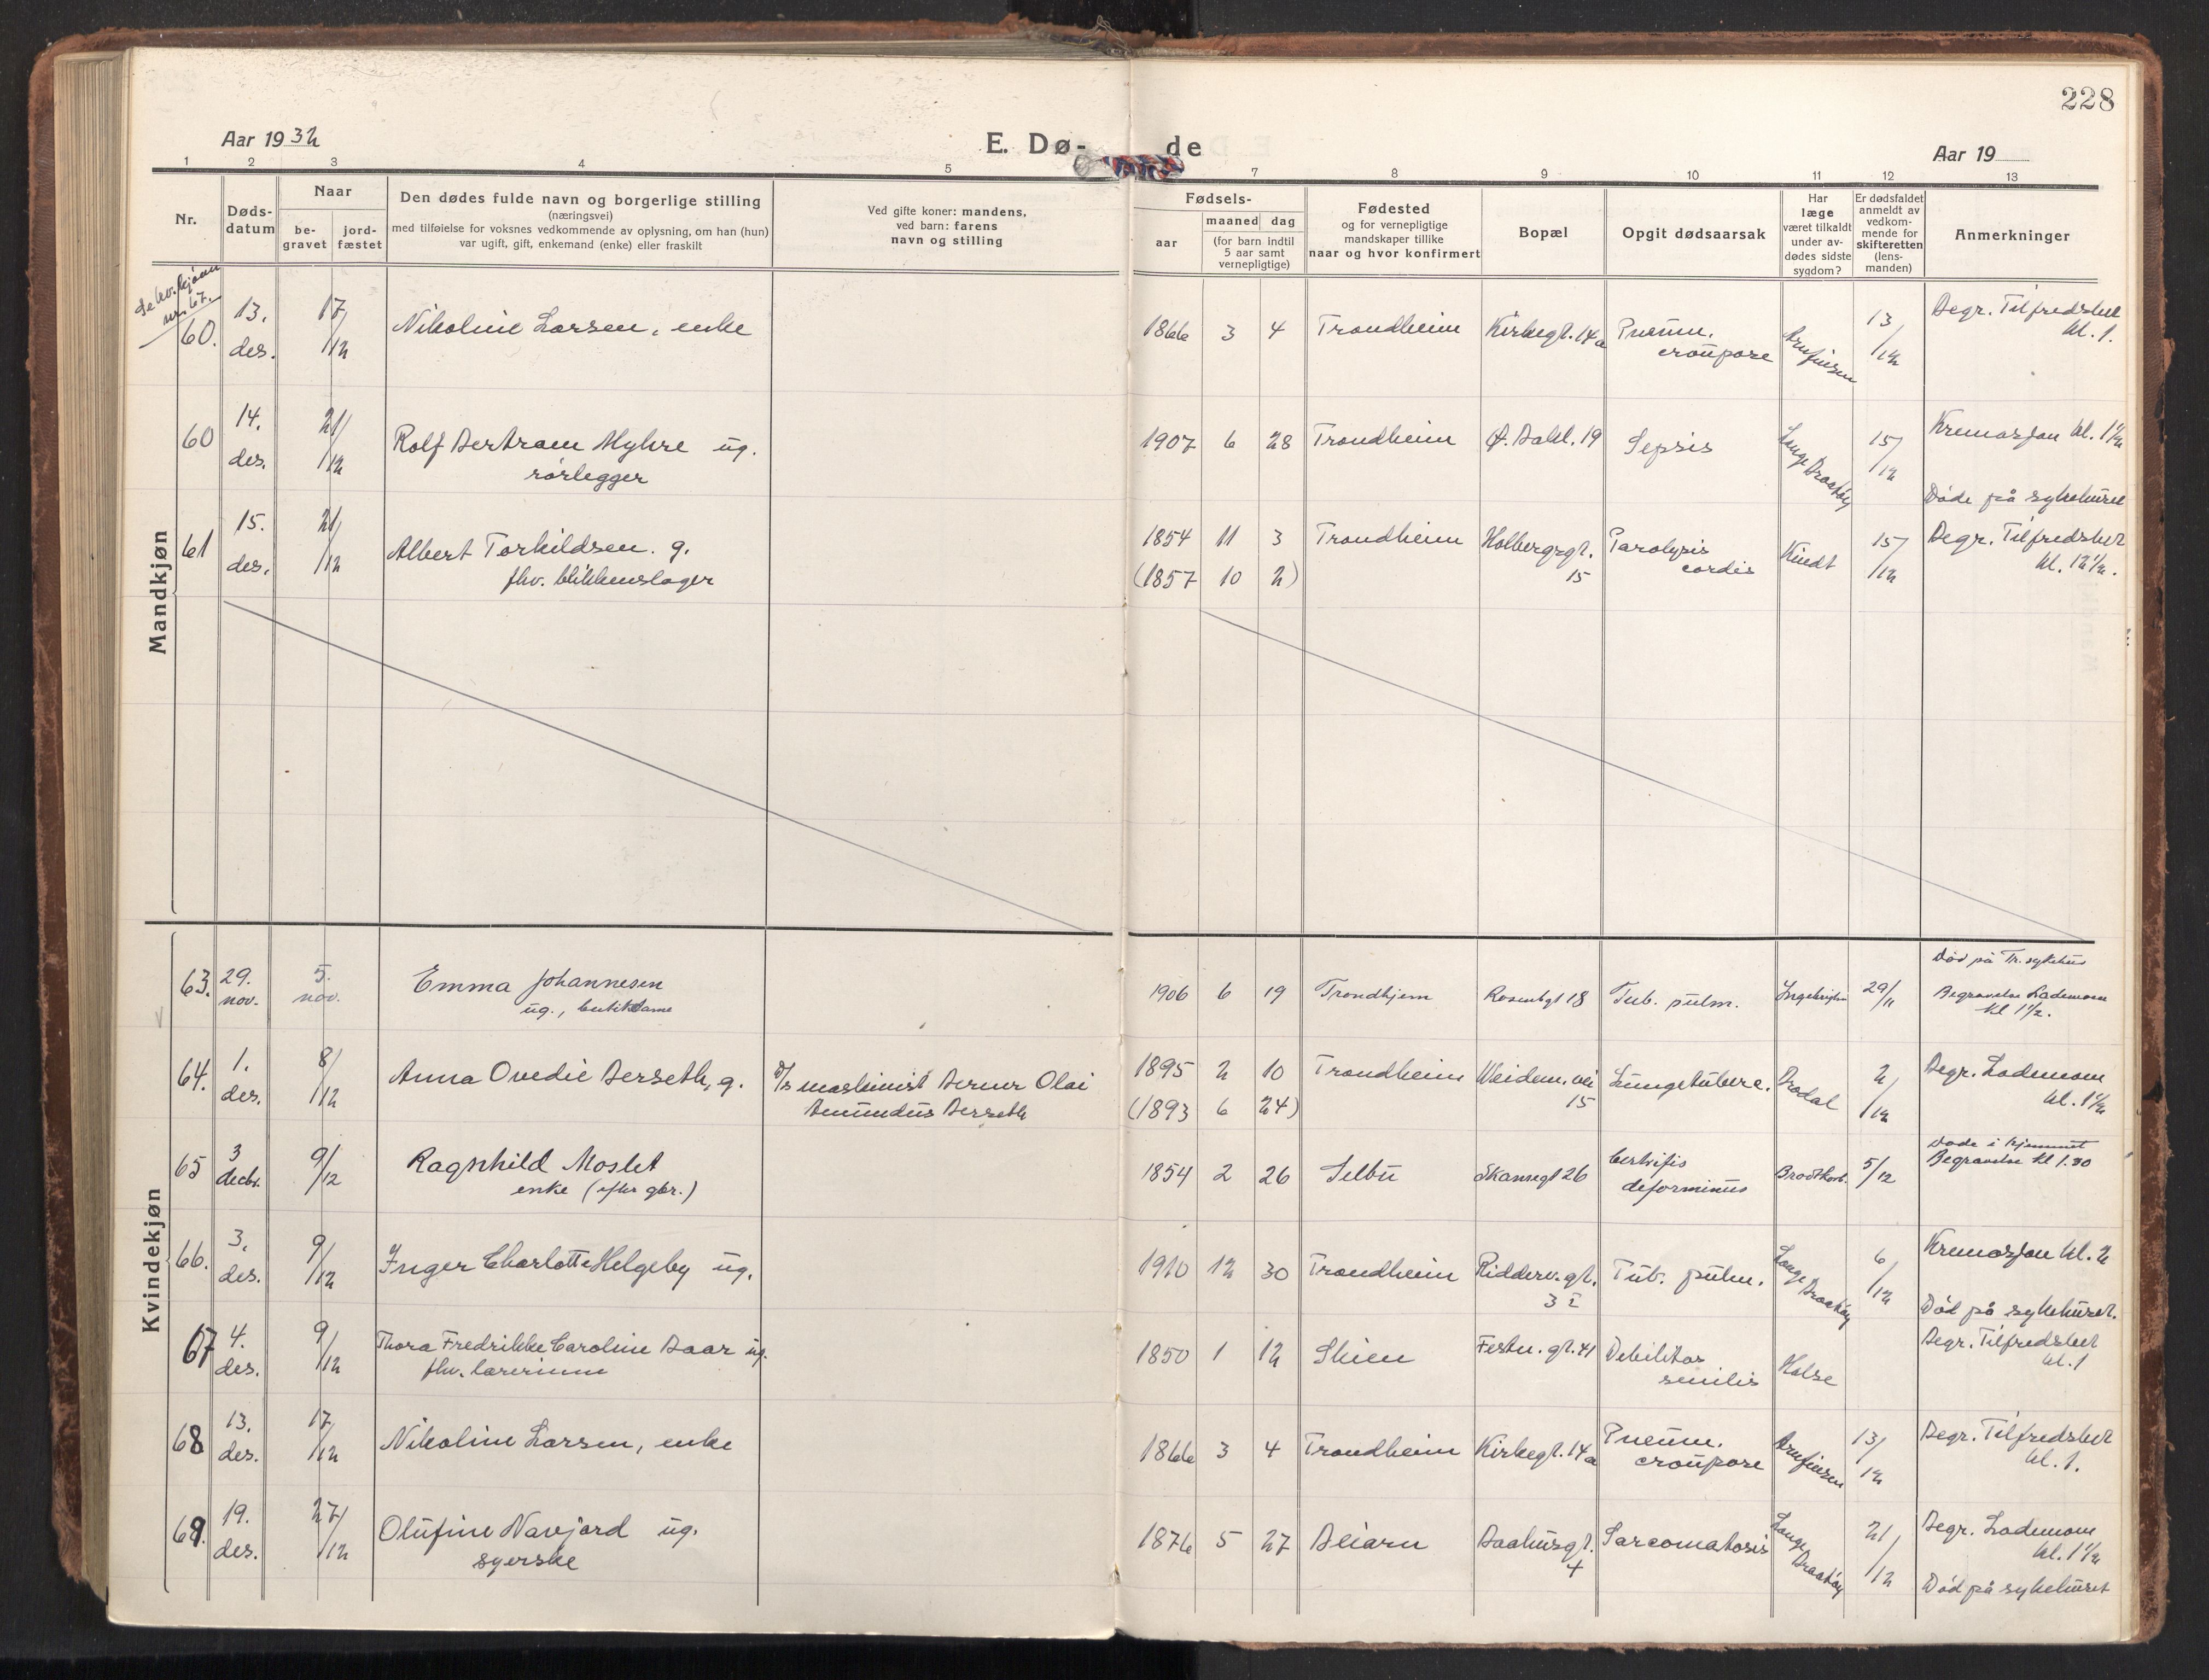 228
Aar 1932
E. Dø-
de
Aar 19
1 2 3 4 5 7 8 9 10 11 12 13
Nr.
Døds-
datum
Naar
be-
gravet
jord-
fæstet
Den dødes fulde navn og borgerlige stilling
(næringsvei)
med tilføielse for voksnes vedkommende av oplysning, om han (hun)
var ugift, gift, enkemand (enke) eller fraskilt
Ved gifte koner: mandens,
ved barn: farens
navn og stilling
Fødsels-
aar
maaned dag
(for barn indtil
5 aar samt
vernepligtige)
Fødested
og for vernepligtige
mandskaper tillike
naar og hvor konfirmert
Bopæl
Opgit dødsaarsak
Har
læge
været tilkaldt
under av-
dødes sidste
sygdom?
Er dødsfaldet
anmeldt av
vedkom-
mende for
skifteretten
(lens-
manden)
Anmerkninger
Mandkjøn
Se kv.kjønn
nr. 67.
60. 13. des. 17/12 Nikoline Larsen, enke 1866 3 4 Trondheim Kirkegt. 14a Pneum. 13/12 Begr. Tilfredshet
croupøse kl. 1.
60 14. des. 21/12 Rolf Bertram Myhre ug. 1907 6 28 Trondheim Ø. Bakl. 19 Sepsis Lange 15/12 Kremasjon kl. 1½
rørlegger Braatøy Døde på sykehuset
61 15. des. 21/12 Albert Torkildsen. g. 1854 11 3 Trondheim Holbergsgt. Paralysis Kindt 15/12 Begr. Tilfredshet
fhv. blikkenslager (1857 10 2) 15 cordis kl. 12½.
Kvindekjøn
Død på Tr. sykehus
63. 29. nov. 5. nov. Emma Johannesen 1906 6 19 Trondhjem Rosenbgt 18 Tub. pulm. 29/11 Begravelse Lademoen
ug., butikdame kl 1½.
64. 1. des. 8/12 Anna Ovedie Berseth, g. maskinist Berner Olai 1895 2 10 Trondheim Weidem. vei Lungetuberc. Brodal 2/12 Begr. Lademoen
Amundus Berseth (1893 6 24) 15 kl. 1½
Døde i hjemmet
65 3 decbr. 9/12 Ragnhild Moslet 1854 2 26 Selbu Skansegt 26 5/12 Begravelse kl 1.30
enke (efter gbr.) deforminus
66. 3. des. 9/12 Inger Charlotte Helgeby ug. 1910 12 30 Trondheim Ridderv. gt. Tub. pulm. Lange 6/12 Kremasjon kl. 2
3 I Braatøy Død på sykehuset.
67 4. des. 9/12 Thora Fredrikke Caroline Baar ug. 1850 1 12 Skien Festn. gt. 41 Debilitas Halse Begr. Tilfredshet
fhv. lærerinne senilis kl. 1
68 13. des. 17/12 Nikoline Larsen, enke 1866 3 4 Trondheim Kirkegt. 14a Pneum. 13/12 Begr. Tilfredshet
croupøse kl. 1.
69. 19. des. 27/12 Olufine Navjord ug. 1876 5 27 Beiarn Baahusgt. Sarcomatosis Lange 21/12 Begr. Lademoen
syerske 4 Braatøy kl. 1½
Død på sykehuset